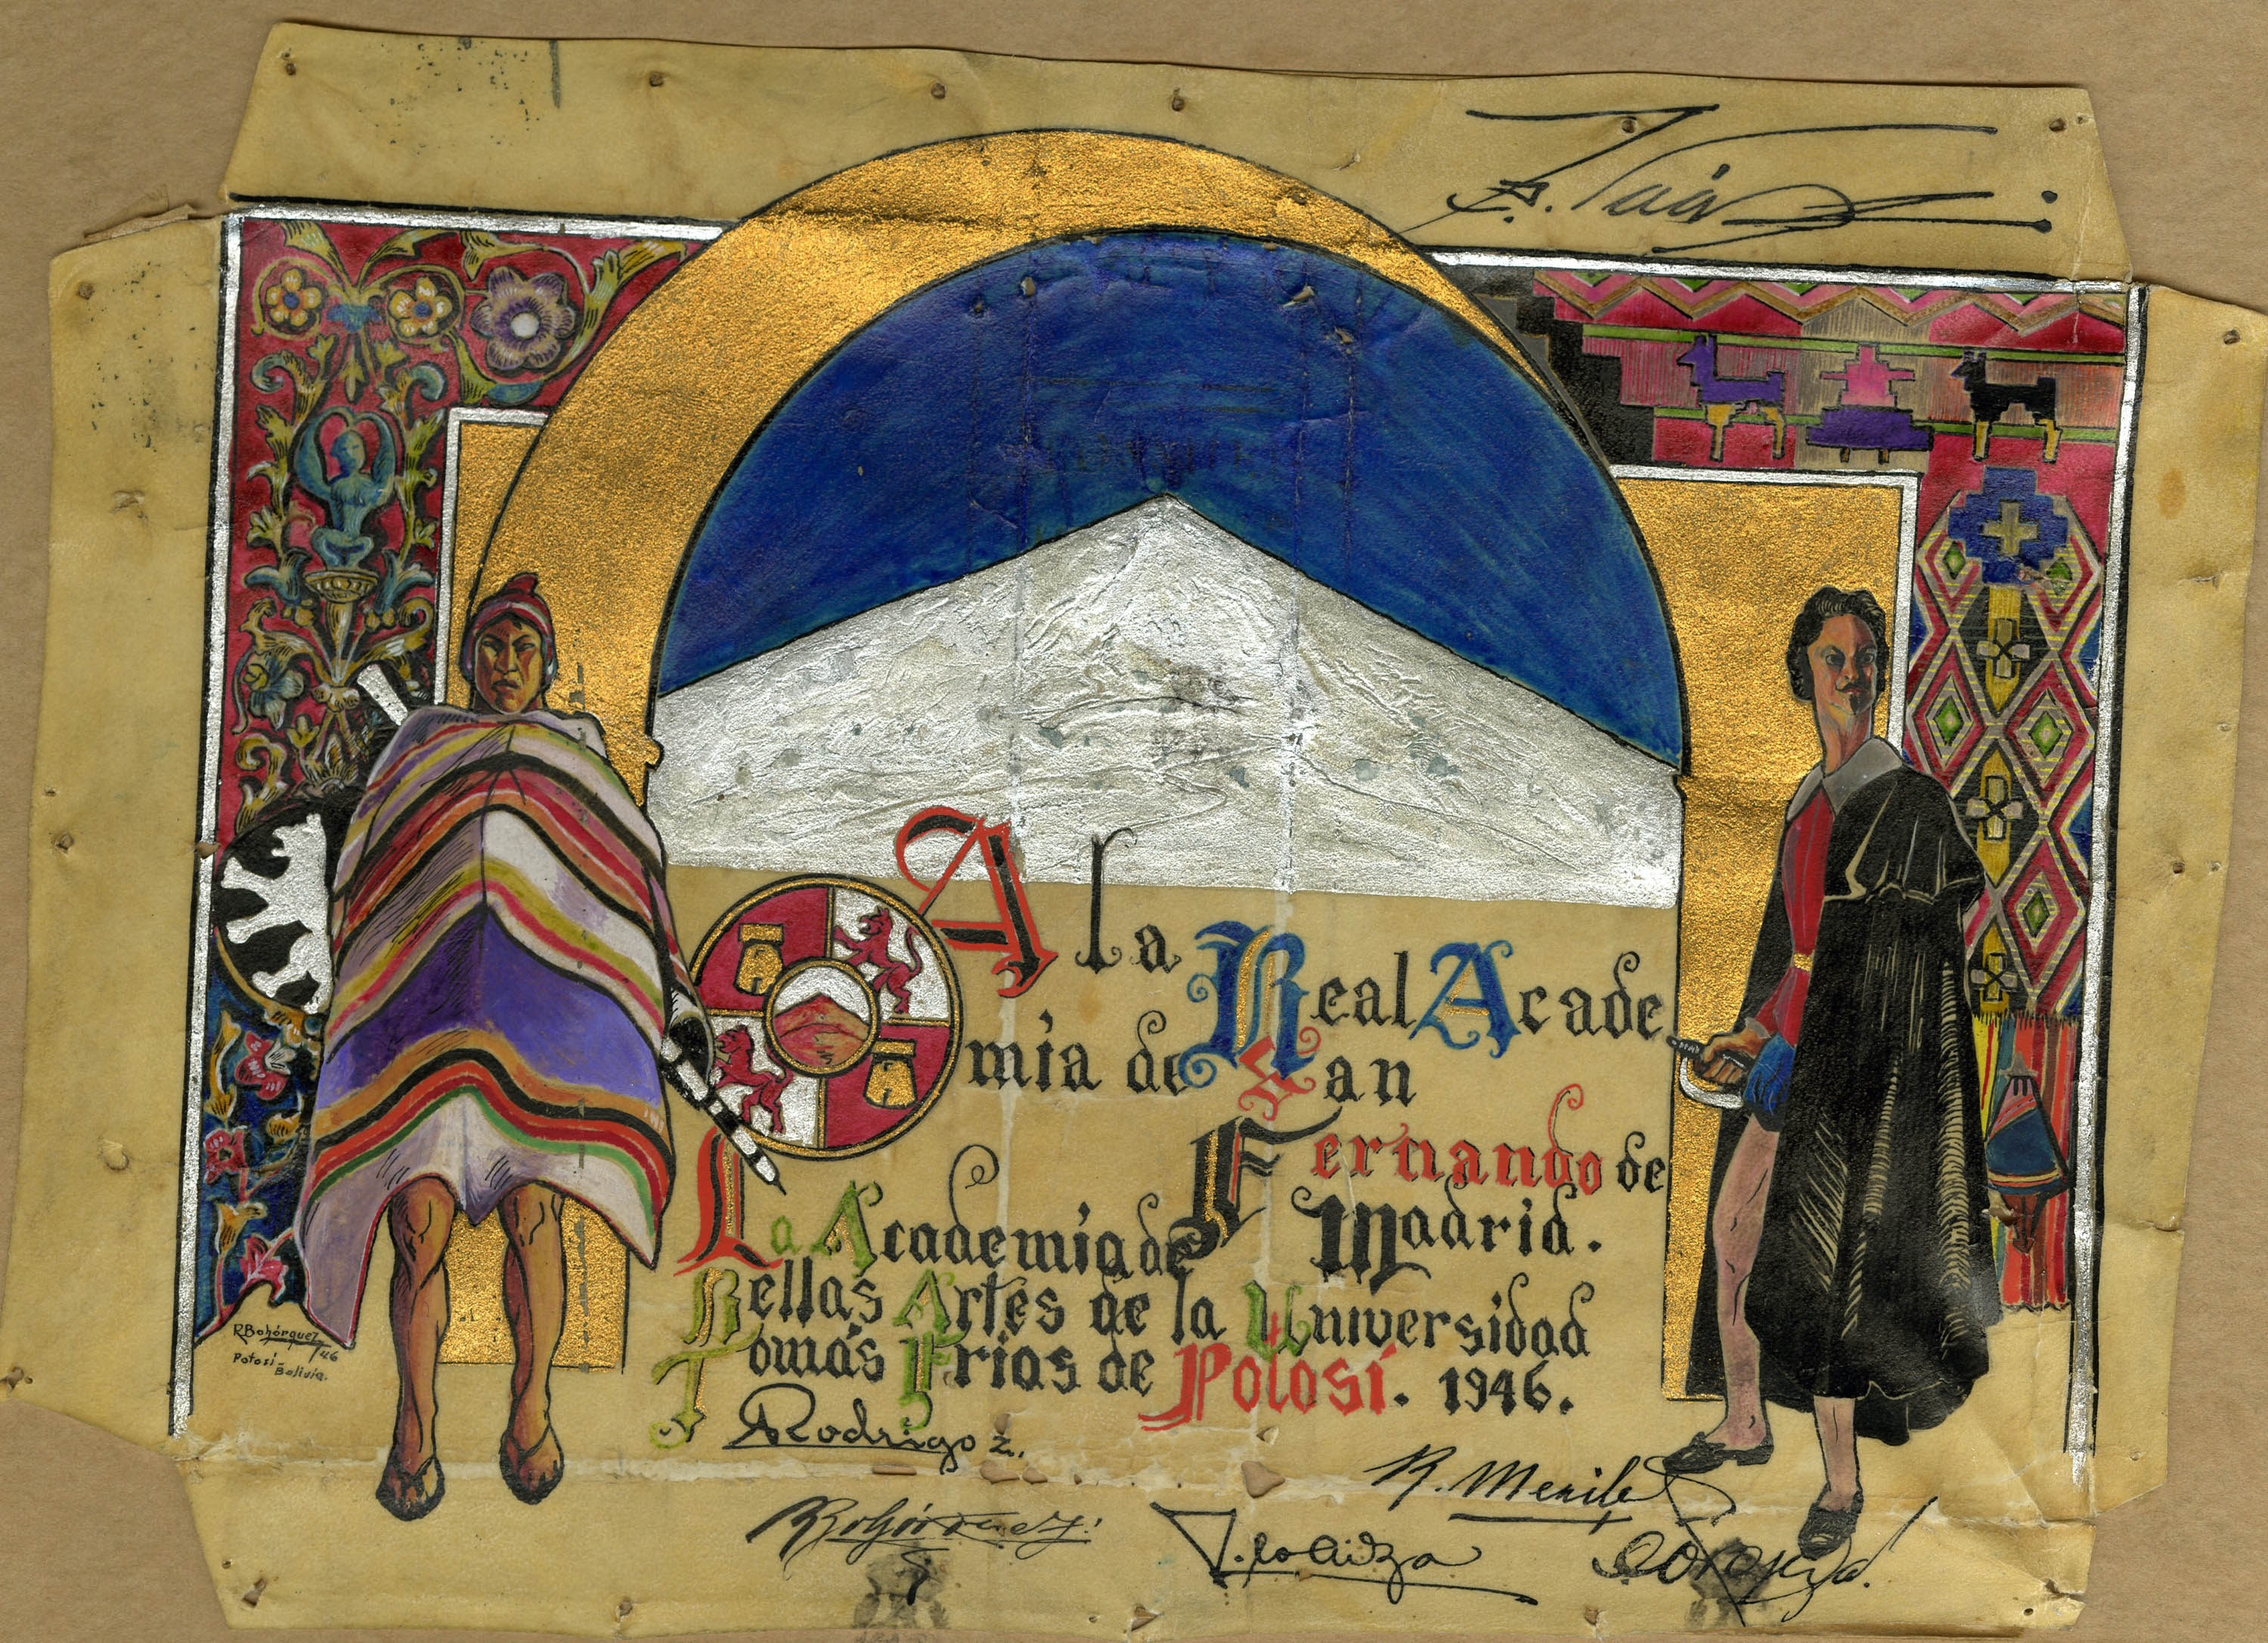 A la Real Acade
mia de San
Fernando de
Madrid.
La Academia de
Bellas Artes de la Universidad
Tomás Frias de Potosí. 1946.
RBohórquez
/46
Potosi-
Bolivia.
Rodrigo Z.
R.
RBohórquez